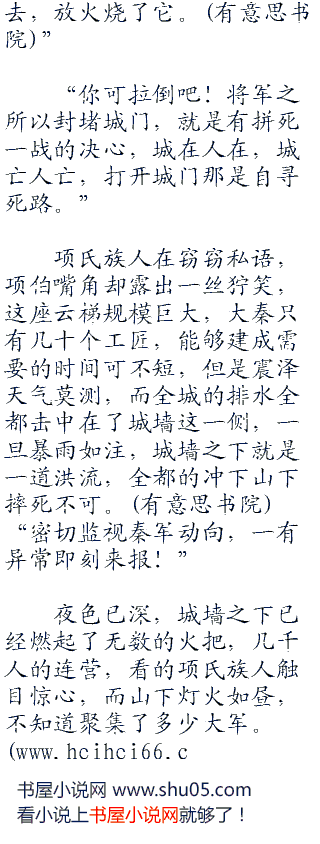 去，放火烧了它。(有意思书
院)”
“你可拉倒吧！将军之
所以封堵城门，就是有拼死
一战的决心，城在人在，城
亡人亡，打开城门那是自寻
死路。”
项氏族人在窃窃私语，
项伯嘴角却露出一丝狞笑，
这座云梯规模巨大，大秦只
有几十个工匠，能够建成需
要的时间可不短，但是震泽
天气莫测，而全城的排水全
都击中在了城墙这一侧，一
旦暴雨如注，城墙之下就是
一道洪流，全都的冲下山下
摔死不可。(有意思书院)
“密切监视秦军动向，一有
异常即刻来报！”
夜色已深，城墙之下已
经燃起了无数的火把，几千
人的连营，看的项氏族人触
目惊心，而山下灯火如昼，
不知道聚集了多少大军。
(www.hcihci66.c
书屋小说网 www.shu05.com
看小说上书屋小说网就够了！